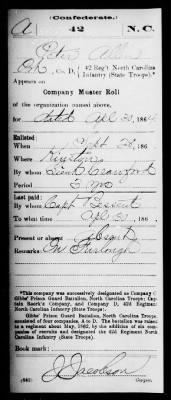 (Confederate.)
A 42 N.C.
Peter
Co. D, 42 Reg't North Carolina
Infantry (State Troops).*
Appears on
Company Muster Roll
of the organization named above,
for dated Apl 30, 186
Enlisted:
When Sept 28, 186
Where Kinston
By whom Lieut Crawford
Period 3 mo
Last paid:
By whom Capt Bessent
To what time Apl 30, 186
Present or absent Absent
Remarks: On Furlough
*This company was successively designated as Company
Gibbs' Prison Guard Battalion, North Carolina Troops; Cap-
tain Company and Company D, 42d Regiment
North Carolina Infantry (State Troops).
Gibbs' Prison Guard Battalion, North Carolina Troops,
consisted of four companies, A to D. The battalion was
raised to a regiment about May, 1862, by the addition of six com-
panies of recruits and designated the 42d Regiment North
Carolina Infantry (State Troops).
Book mark:
J. Jacobson
Copyist.